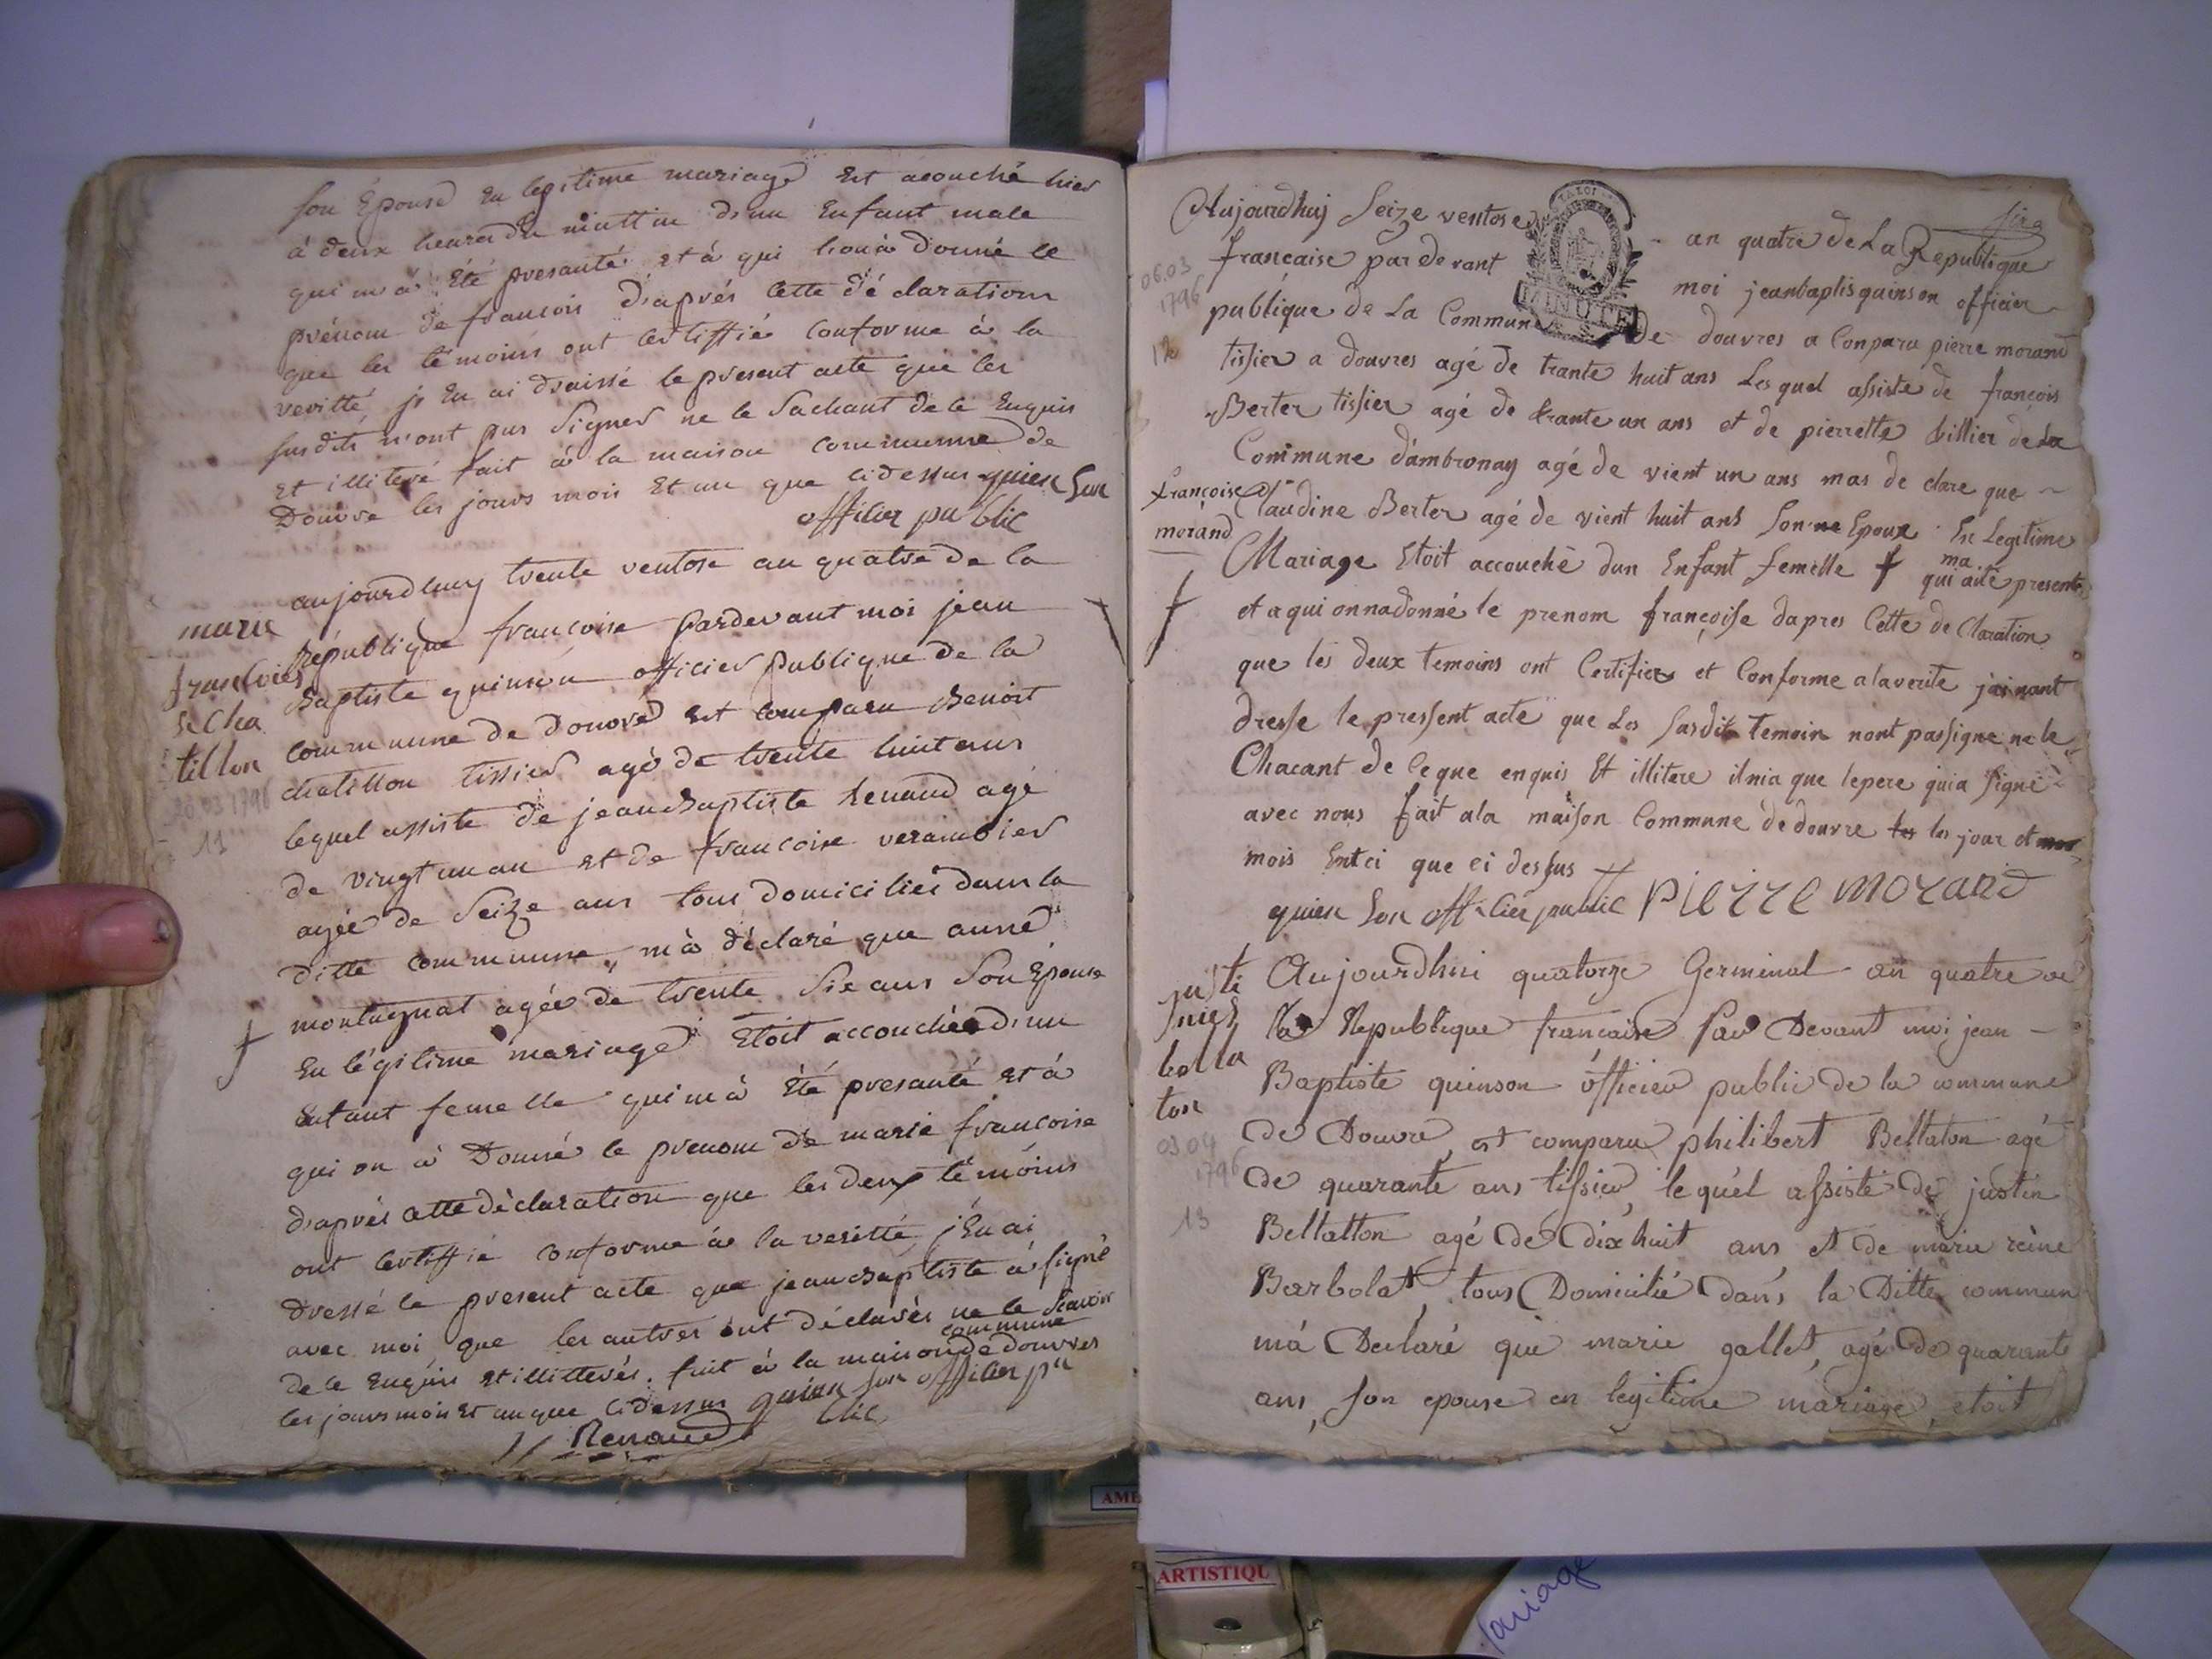 son Epouse En legitime mariage Est acouché hier
à deux heures du mattin d'un Enfant male
qui m'à Eté presanté et à qui l'on à donné le
prénom de francois d'aprés cette déclaration
que les témoins ont certiffié conforme à la
veritté, j'en ai draissé le present acte que les
susdits n'ont pas signer ne le sachant de ce Enquis
et illiteré fait à la maison commune de
Douvre les jours mois et an que cidessus quinson
officier public
aujourdhuy trente ventose an quatre de la
république francoise pardevant moi jean
Baptiste quinson officier publique de la
commune de Douvre est comparu Benoit
chatillon tissier agé de trente huit ans
lequel assisté de jean Baptiste Renaud agé
de vingt un an et de francoise
agée de Seize ans tous domiciliés dans la
ditte commune, m'à déclaré que anne
montagnat agée de trente six ans son Epouse
En légitime mariage Etoit accouchée d'un
Enfant femelle qui m'à été presanté et à
qui on à Donné le prenom de marie francoise
d'aprés cette déclaration que les deux témoins
ont certiffié conforme à la veritté, j'en ai
dressé le present acte que jean Baptiste à signé
avec moi que les autres ont déclarés ne le scavoir
de ce Enquis et illitterés. fait à la maison commune de douvres
les jours mois et an que cidessus quinson officier pu
blic
Renaud
marie
francoise
chatillon
20.03 1796
11
Aujourdhuy seize ventose an quatre de La Republique
francaise par devant moi jeanbaptis quinson officier
publique de La Commune de douvres a Conparu pierre morand
tissier a douvres agé de trante huit ans Lesquel assiste de françois
Berter tissier agé de trante un ans et de pierrette billier de La
Commune d'ambronay agé de vient un ans mas de clare que
Claudine Berter agé de vient huit ans son ne Epoux En Legitime
Mariage Etoit accouché dun Enfant femelle ma qui aité presente
et a qui onnadonné le prenom françoisse dapres Cette de Claration
que les deux temoins ont Certifier et Conforme alaverite jai nant
dresse le pressent acte que Les susdit temoin nont passigne ne le
Chacant de Ceque enquis Et illitere ilnia que lepere quia signé
avec nous fait ala maison Commune de douvre les les jour et
mois Entci que ci dessus
quinson officier public Pierre morand
françoise
morand
06.03
1796
12
LA LOI
MINUTE
Aujourdhui quatorze Germinal an quatre de
la Republique francaise Par Devant moi jean
Baptiste quinson officier public de la commune
de Douvre, est comparu philibert Bellaton agé
de quarante ans tissier, lequél assisté de justin
Bellatton agé de dix huit ans, et de marie reine
Barbolat, tous Domicilié dans la Ditte commun
m'à Declaré que marie gallet, agé de quarante
ans, son epouse en legitime mariage, etoit
bella
ton
03 04
1796
13
AME
ARTISTIQU
mariage